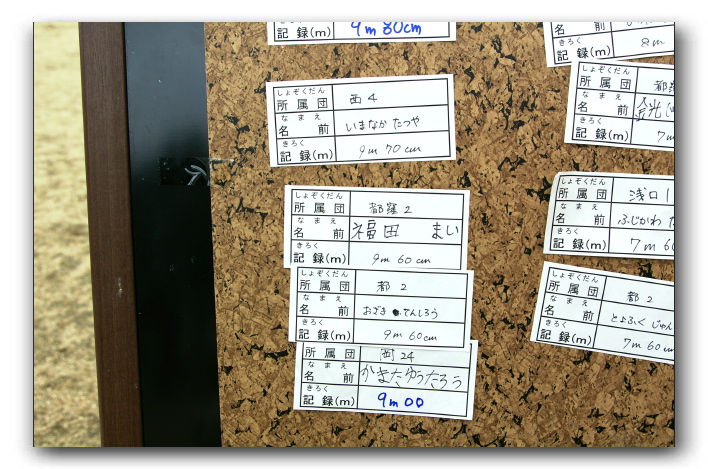 記録(m) 9m 80cm
しょぞくだん
所属団 西4
なまえ
名前 いまなか たつや
きろく
記録(m) 9m 70cm
しょぞくだん
所属団 都窪2
なまえ
名前 福田 まい
きろく
記録(m) 9m 60cm
しょぞくだん
所属団 都2
なまえ
名前 おざき てんしろう
きろく
記録(m) 9m 60cm
所属団 岡24
なまえ
名前 かまたゆうたろう
きろく
記録(m) 9m00
きろく
記録(m) 8m
しょぞくだん
所属団 都
なまえ
名前 金光
きろく
記録(m) 7m
しょぞくだん
所属団 浅口1
なまえ
名前 ふじかわ
きろく
記録(m) 7m 60
しょぞくだん
所属団 都2
なまえ
名前 とよふく じゅん
きろく
記録(m) 7m 60